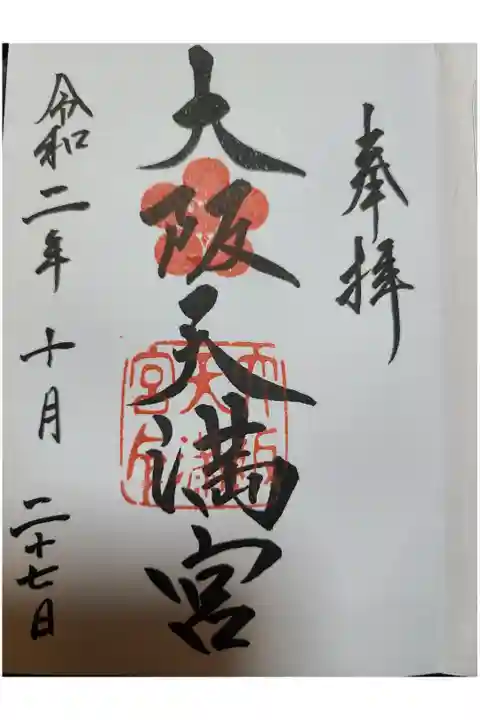 奉拝
大阪天満宮
令和二年 十月 二十七日